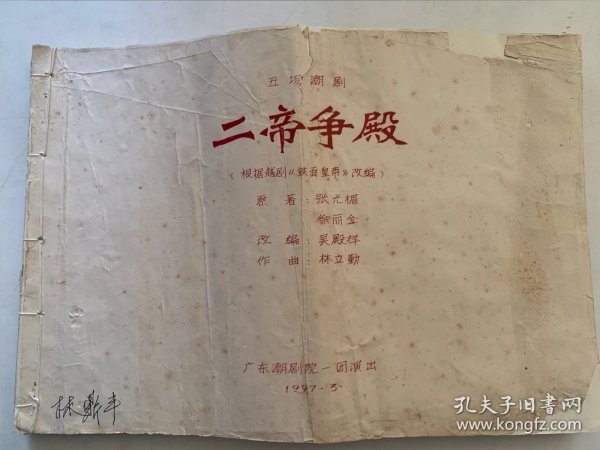 五场潮剧
二帝争殿
(根据越剧《铁面皇帝》改编)
原著:张光楣
徐丽金
改编:吴殿祥
作曲:林立勤
广东潮剧院一团演出
1997.3.
孔夫子旧书网
www.kongfz.com